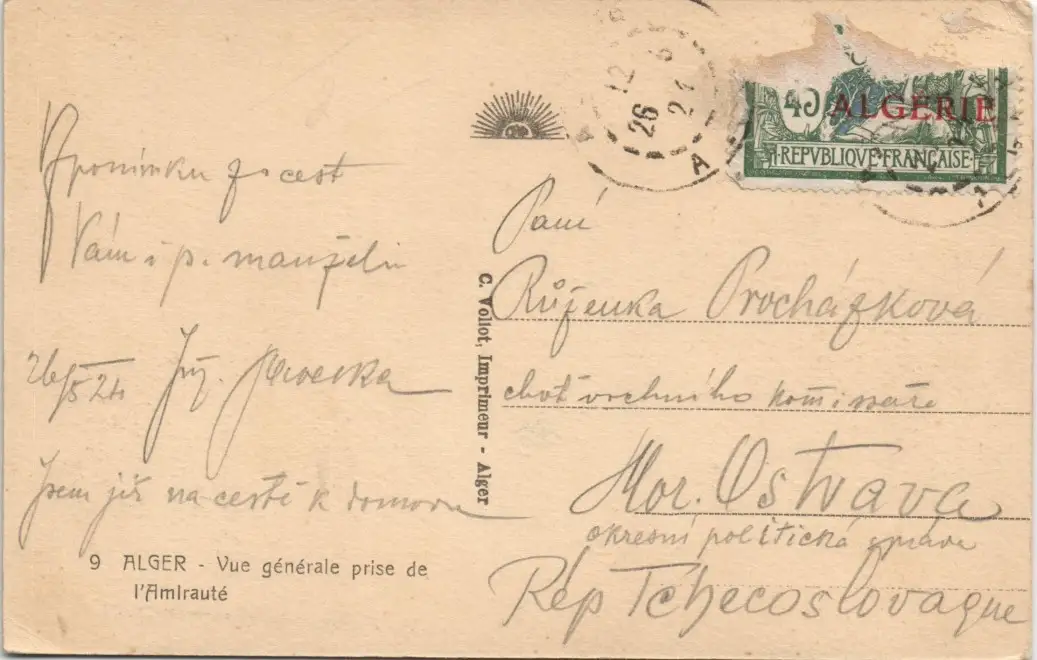 12
26 5
24
A
45 ALGERIE
REPVBLIQVE FRANÇAISE
Vzpomínku z cest
Vám i p. manželu
26/5 24
Jsem již na cestě k domovu
9 ALGER - Vue générale prise de
l'Amirauté
C. Vollot, Imprimeur - Alger
Paní
Růženka Procházková
choť vrchního komisaře
Mor. Ostrava
okresní politická správa
Rép Tchecoslovaque